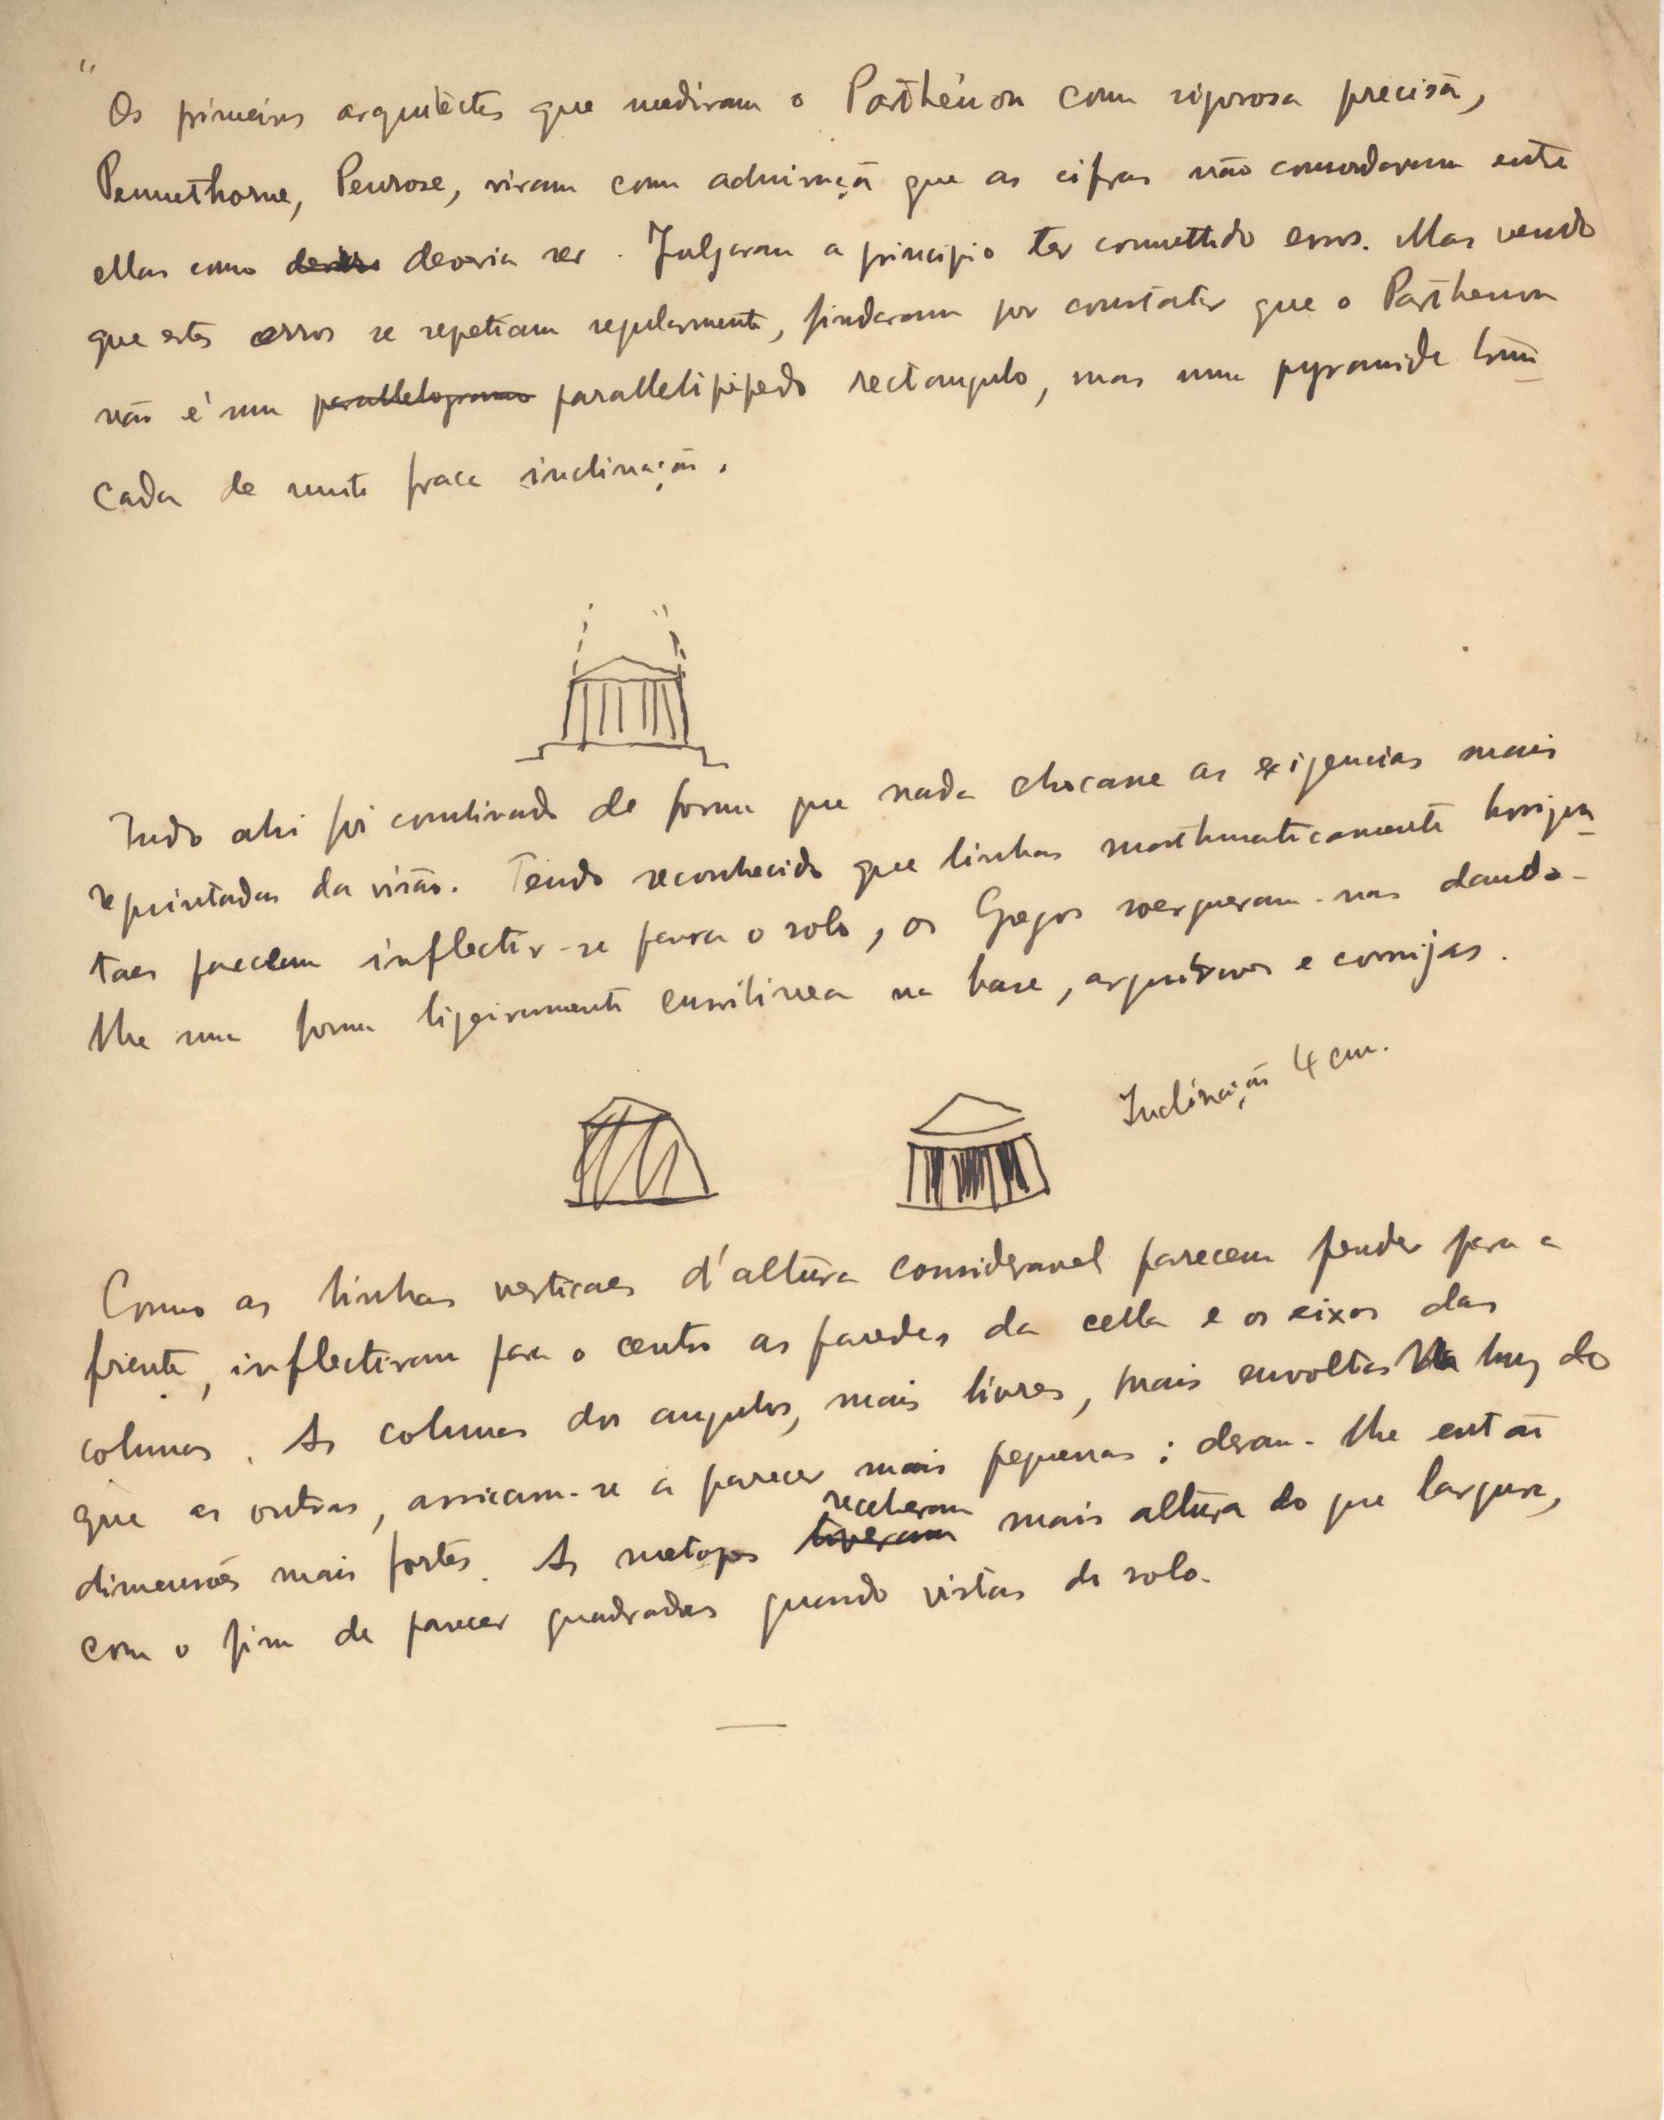 "Os primeiros arquitectos que mediram o Parthénon com rigorosa precisão,
Pennethorne, Penrose, viram com admiração que as cifras não concordavam entre
ellas como deveria ser. Julgaram a principio ter commettido erros. Mas vendo
que estes erros se repetiam regularmente, findaram por constatar que o Parthenon
não é um parallelogramo parallelipipedo rectangulo, mas uma pyramide trun
cada de muito fraca inclinação.
Tudo ahi foi combinado de forma que nada chocasse as exigencias mais
requintadas da visão. Tendo reconhecido que linhas mathematicamente horizon
taes parecem inflectir-se para o solo, os Gregos soergueram-nas dando-
lhe uma forma ligeiramente curvilinea na base, arquitraves e cornijas.
Inclinação 4 cm.
Como as linhas verticaes d'altura consideravel parecem pender para a
frente, inflectiram para o centro as paredes da cella e os eixos das
columnas. As columnas dos angulos, mais livres, mais envoltas na luz do
que as outras, arriscam-se a parecer mais pequenas: deram-lhe então
receberam
dimensões mais fortes. As metopes tiveram mais altura do que largura,
com o fim de parecer quadradas quando vistas do solo.